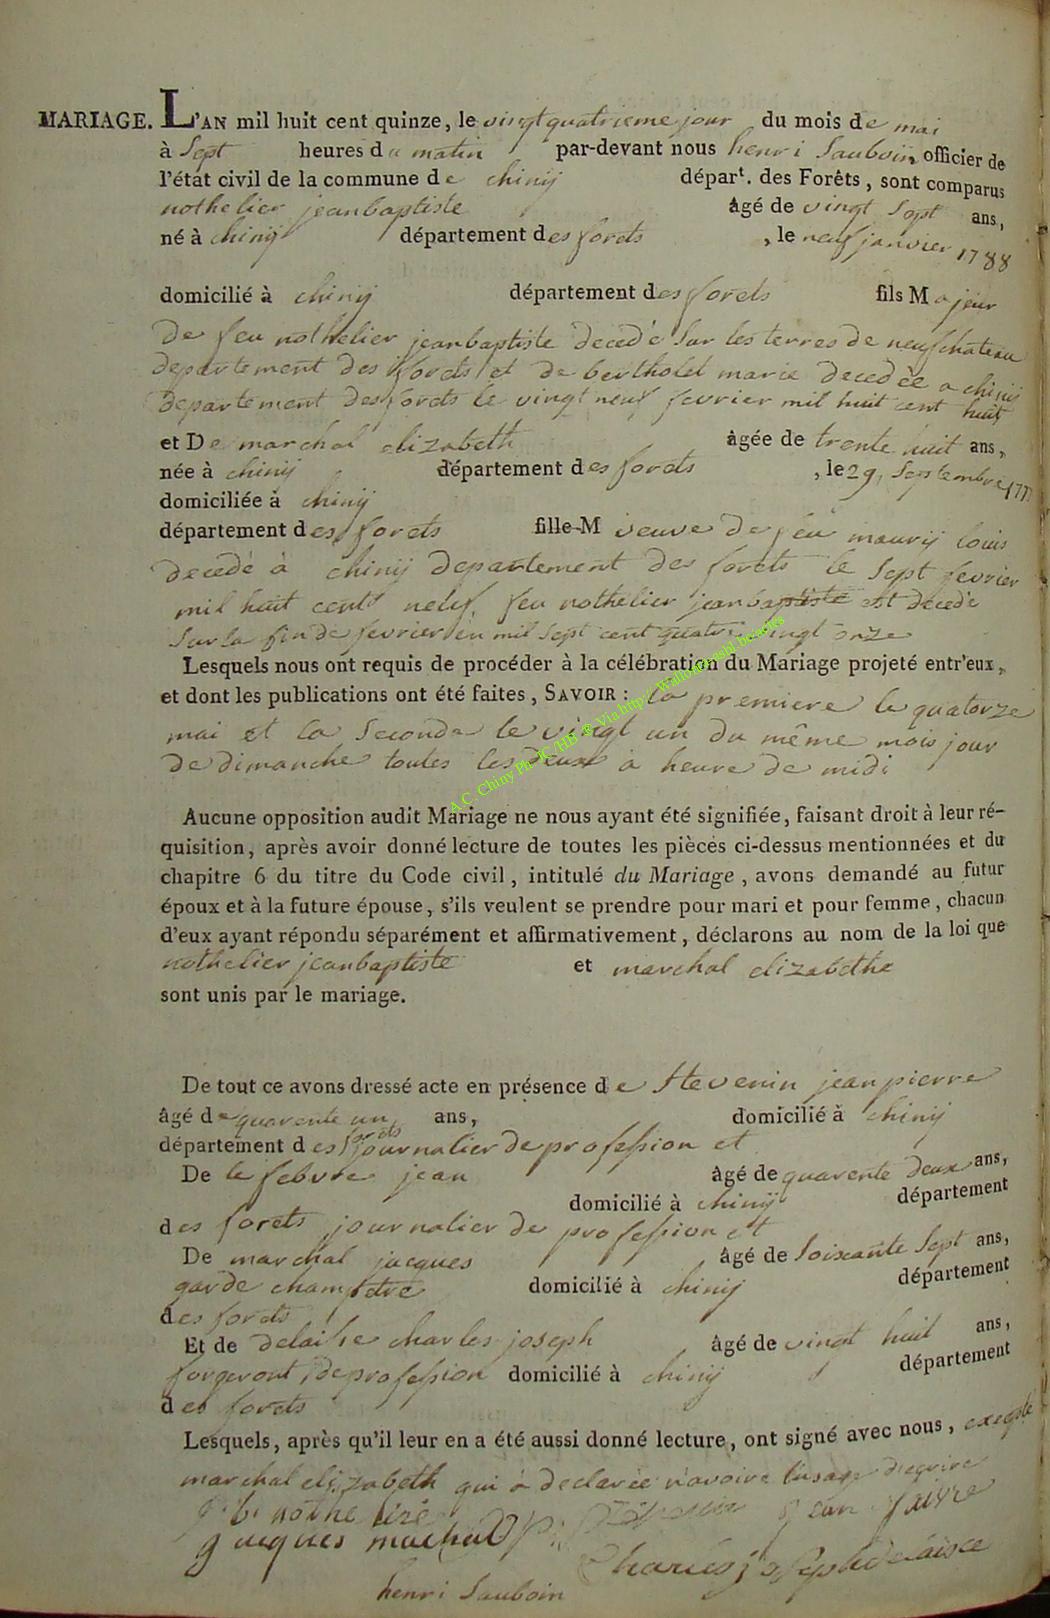 MARIAGE. L'AN mil huit cent quinze, le vingt quatrieme jour du mois de mai
à Sept heures du matin par-devant nous henri Sauboin officier de
l'état civil de la commune de chinij départ. des Forêts, sont comparus
nothelier jeanbaptiste âgé de vingt Sept ans,
né à chinij département des forets, le neuf janvier 1788
domicilié à chinij département des forets fils Majeur
de feu nothelier jeanbaptiste decedé Sur les terres de neufchateau
departement des forets et de berthold marie decedée a chinij
departement des forets le vingt neuf fevrier mil huit cent huit
et De marchal elizabeth âgée de trente huit ans,
née à chinij département des forets, le 29, Septembre
domiciliée à chinij
département des forets fille M veuve de feu maurij louis
decedé à chinij departement des forets le Sept fevrier
mil huit cent neuf, feu nothelier jeanbaptiste est decedé
Sur la fin de fevrier en mil sept cent quatre vingt onze
Lesquels nous ont requis de procéder à la célébration du Mariage projeté entr'eux,
et dont les publications ont été faites, SAVOIR : la premiere le quatorze
mai et la Seconde le vingt un du même mois jour
de dimanche toutes les deux a heure de midi
A.C. Chiny Ph JC /HB ® Via http://Wallonia.eshl.be/aries
Aucune opposition audit Mariage ne nous ayant été signifiée, faisant droit à leur ré-
quisition, après avoir donné lecture de toutes les pièces ci-dessus mentionnées et du
chapitre 6 du titre du Code civil, intitulé du Mariage, avons demandé au futur
époux et à la future épouse, s'ils veulent se prendre pour mari et pour femme, chacun
d'eux ayant répondu séparément et affirmativement, déclarons au nom de la loi que
nothelier jeanbaptiste et marchal elizabethe
sont unis par le mariage.
De tout ce avons dressé acte en présence de Stevenin jeanpierre
âgé de quarente un ans, domicilié à chinij
département des forets journalier de profession et
De le febvre jean âgé de quarente deux ans,
domicilié à chinij département
des forets journalier de profession et
De marchal jacques âgé de Soixante Sept ans,
garde champetre domicilié à chinij département
des forets
Et de delaisse charles joseph âgé de vingt huit ans,
forgeront de profession domicilié à chinij département
des forets
Lesquels, après qu'il leur en a été aussi donné lecture, ont signé avec nous, exepte
marchal elizabeth qui à declarée n'avoire l'usage d'ecrire
jacques machal
Charles joseph delaisce
henri Sauboin